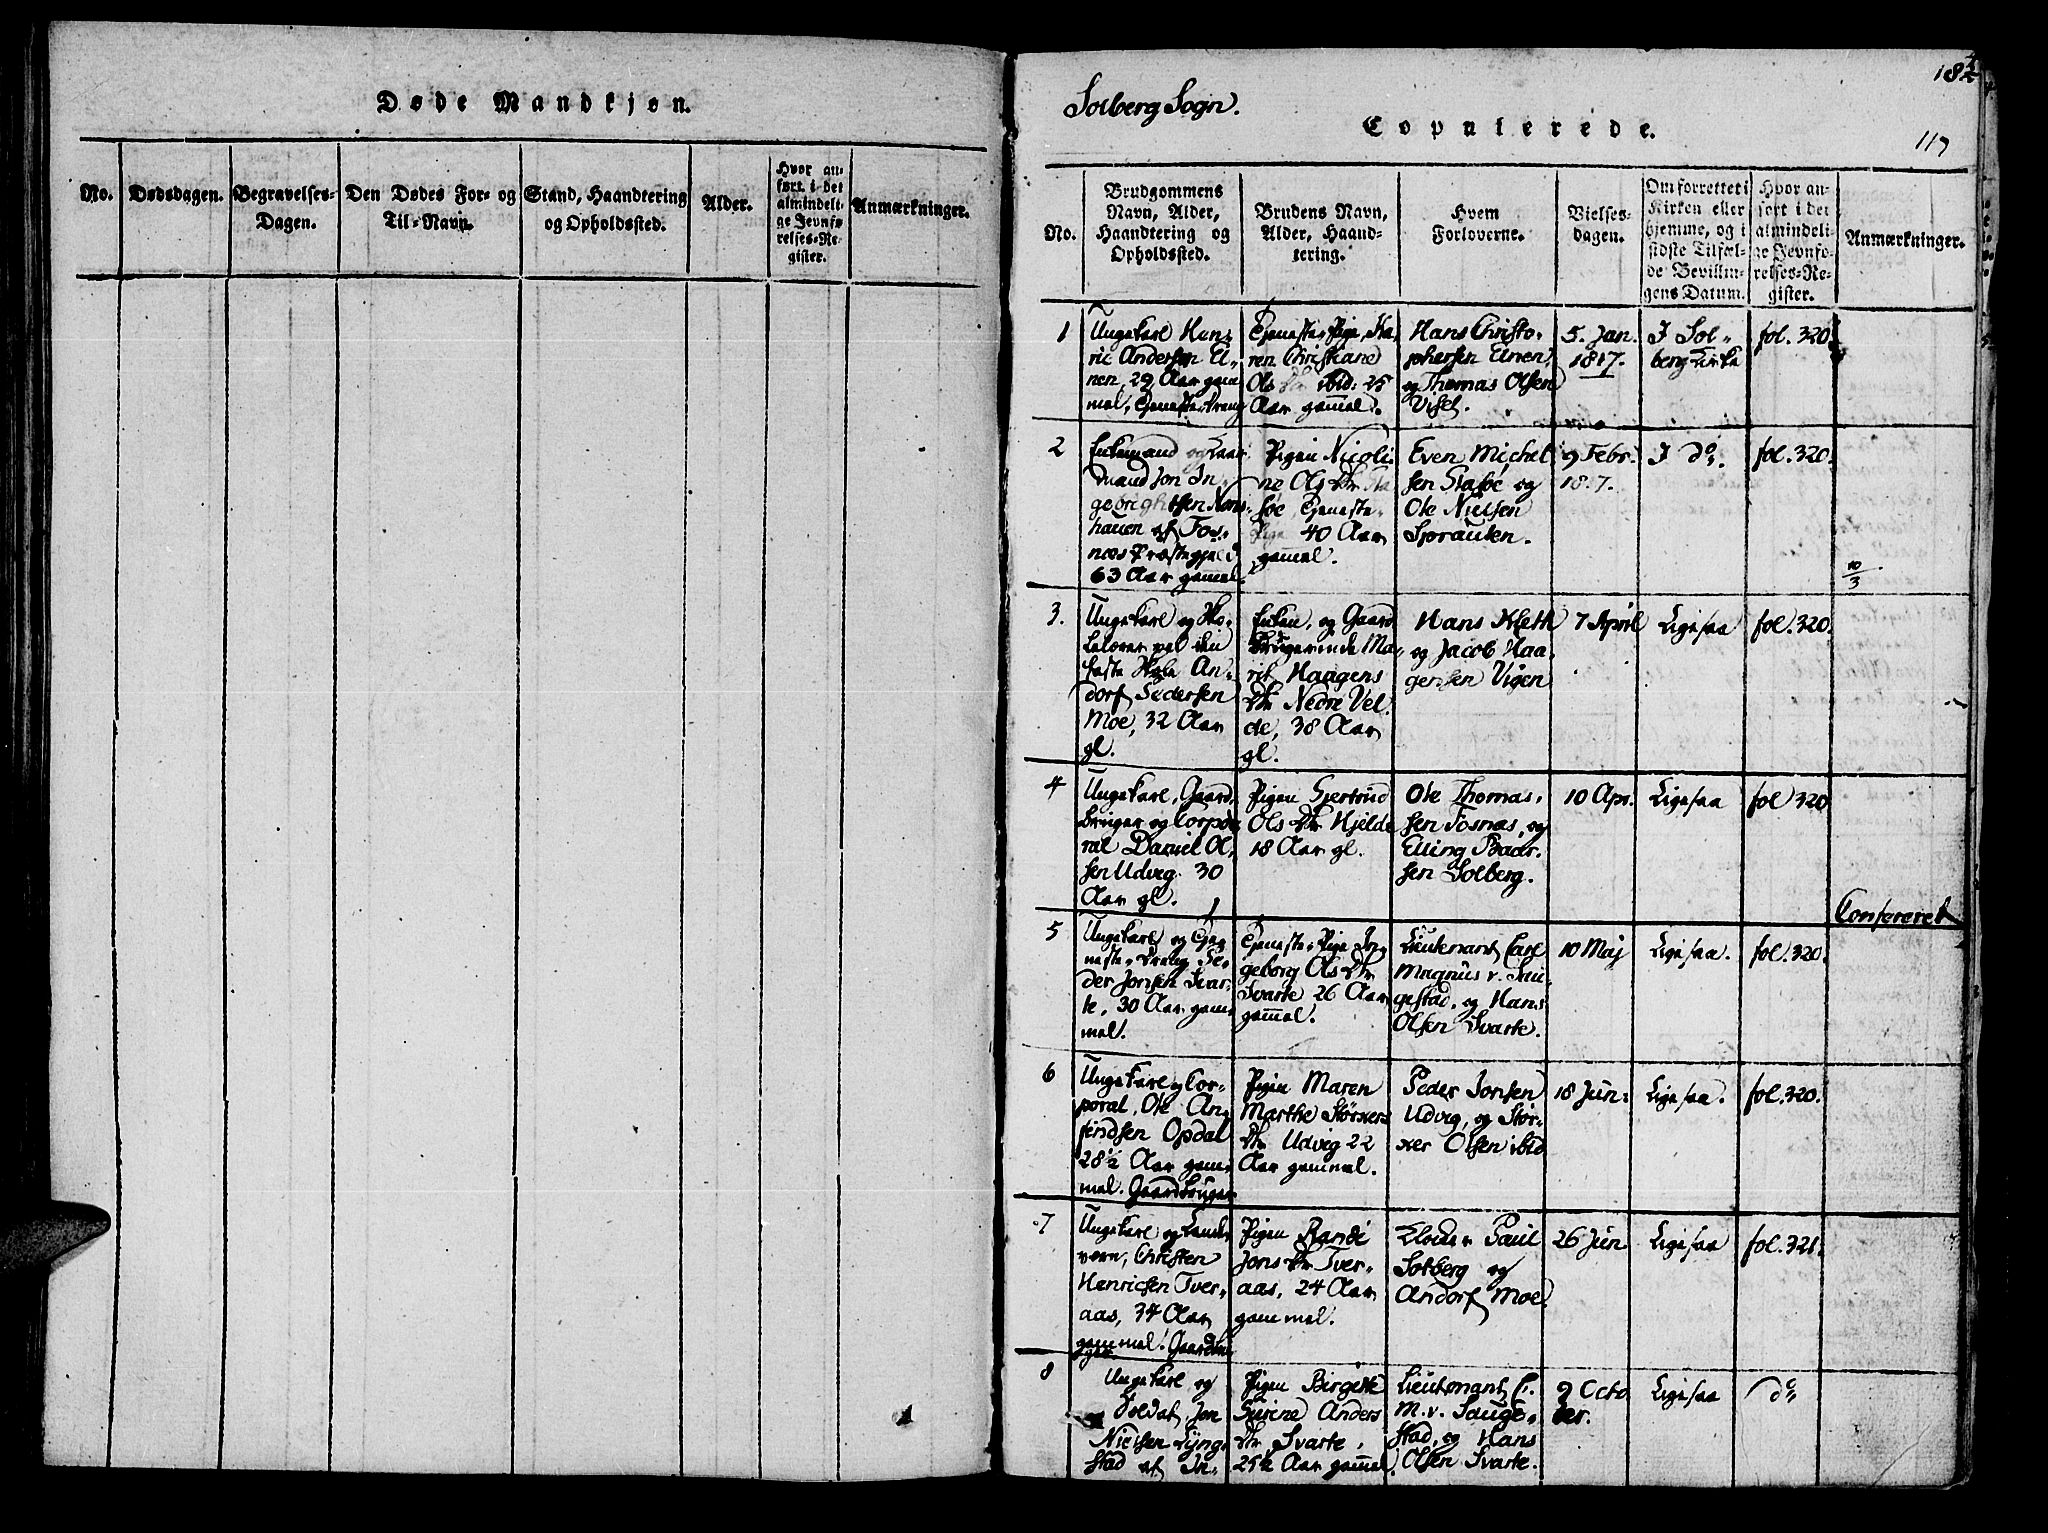 Døde Mandkjøn.
No.
Dødsdagen.
Begravelses-
Dagen.
Den Dødes For- og
Til-Navn.
Stand, Haandtering
og Opholdssted.
Alder.
Hvor an-
ført i det
almindeli-
ge Jevnfø-
relses-Re-
gister.
Anmærkninger.
Solberg Sogn.
Copulerede.
117
No.
Brudgommens
Navn, Alder,
Haandtering og
Opholdssted.
Brudens Navn,
Alder, Haand-
tering.
Hvem
Forloverne.
Vielses-
dagen.
Om forrettet i
Kirken eller
hjemme, og i
sidste Tilfæl-
de Bevillin-
gens Datum.
Hvor an-
ført i det
almindeli-
ge Jevnfø-
relses-Re-
gister.
Anmærkninger.
1
Ungekarl Hen-
ric Andersen El-
nen, 29 Aar gam-
mel, Tjenestedreng
Tjeneste-Pige, Ka-
ren Christiane
Ols Dr ibid: 25
Aar gamel.
Hans Christo-
phersen Elnen
og Thomas Olsen
Visel.
5. Jan.
1817.
I Sol-
berg Kirke
fol. 320
2
Enkemand og Gaar-
mand Jon In-
gebrightsen
hauen af Fos-
næs Præstegjeld
63 Aar gamel.
Pigen Nicoli-
ne Ols Dr Sta-
søe Tjeneste-
Pige 40 Aar
gamel.
Even Michel
sen Stasøe og
Ole Nielsen
Sprauten.
9 Febr.
1817.
I do.
fol. 320.
10/3
3.
Ungekarl og Sko-
lelærer ved den
faste Skole An-
dorf Siversen
Moe, 32 Aar
gl.
Enken, og Gaard
Brugerinde Ma-
rit Haagens
Dr Nedre Vel
de, 38 Aar
gl.
Hans Kleth
og Jacob Haa-
gensen Vigen
7 April
Ligesaa
fol. 320.
4
Ungekarl, Gaard-
bruger og Corpo-
ral Daniel Ol-
sen Udvig 30
Aar gl.
Pigen Gjertrud
Ols Dr Hjelde
18 Aar gl.
Ole Thomas-
sen Fosnæs, og
Elling Baar-
sen Solberg.
10 Apr.
Ligesaa
fol 320
Confereret
5
Ungekarl og Tje-
neste-Dreng Pe-
der Jonsen Svar-
te, 30 Aar gam-
mel.
Tjeneste-Pige In-
geborg Ols Dr
Svarte 26 Aar
gamel.
Lieutenant Carl
Magnus v. Sau-
gestad, og Hans
Olsen Svarte.
10 Maj
Ligesaa.
fol. 320.
6
Ungekarl og Cor-
poral, Ole An-
findsen Opdal
28½ Aar gam-
mel. Gaardbruger
Pigen Maren
Marthe Størkers
Dr Udvig 22
Aar gammel.
Peder Jonsen
Udvig, og Stør-
ker Olsen ibid
18 Jun.
Ligesaa.
fol. 320.
7
Ungekarl og Land-
værn, Christen
Henricsen Tver-
aas, 34 Aar
gammel. Gaardbru-
ger
Pigen Randi
Jons Dr Tver-
aas, 24 Aar
gammel.
Klokker Paul
Solberg og
Andorf Moe.
26 Jun.
Ligesaa
fol. 321.
8
Ungekarl og
Soldat, Jon
Nielsen Lyng-
stad af In-
Pigen Birgitte
Surine Anders
Dr Svarte,
25½ Aar gamel.
Lieutenant C.
M. v. Sauge-
stad, og Hans
Olsen Svarte.
9 Octo
ber.
Ligesaa
do